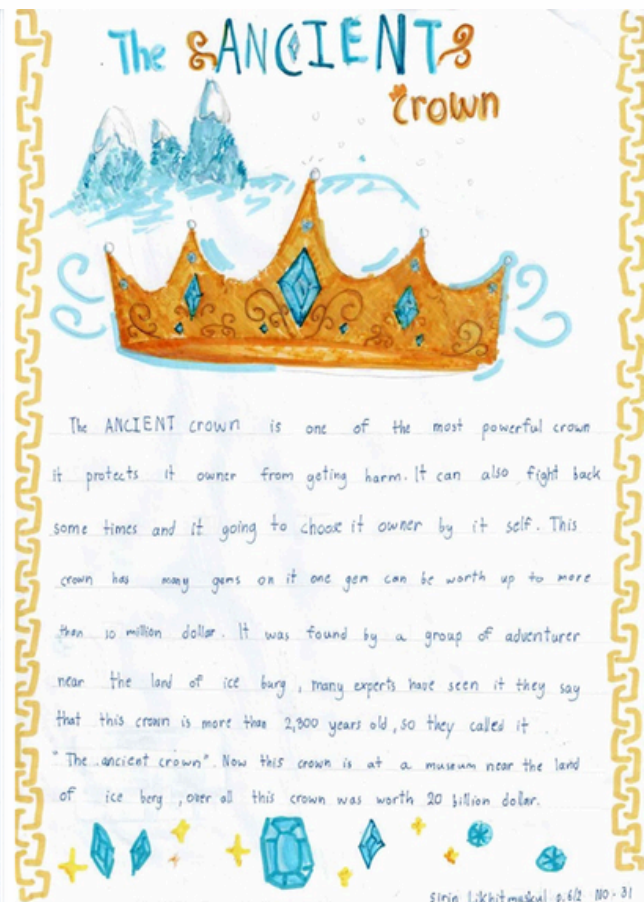 The ANCIENT
crown
The ANCIENT crown is one of the most powerful crown
it protects it owner from geting harm. It can also fight back
some times and it going to choose it owner by it self. This
crown has many gems on it one gem can be worth up to more
than 10 million dollar. It was found by a group of adventurer
near the land of ice burg, many experts have seen it they say
that this crown is more than 2,300 years old, so they called it
"The ancient crown". Now this crown is at a museum near the land
of ice berg, over all this crown was worth 20 billion dollar.
Sirin p.6/2 NO. 31